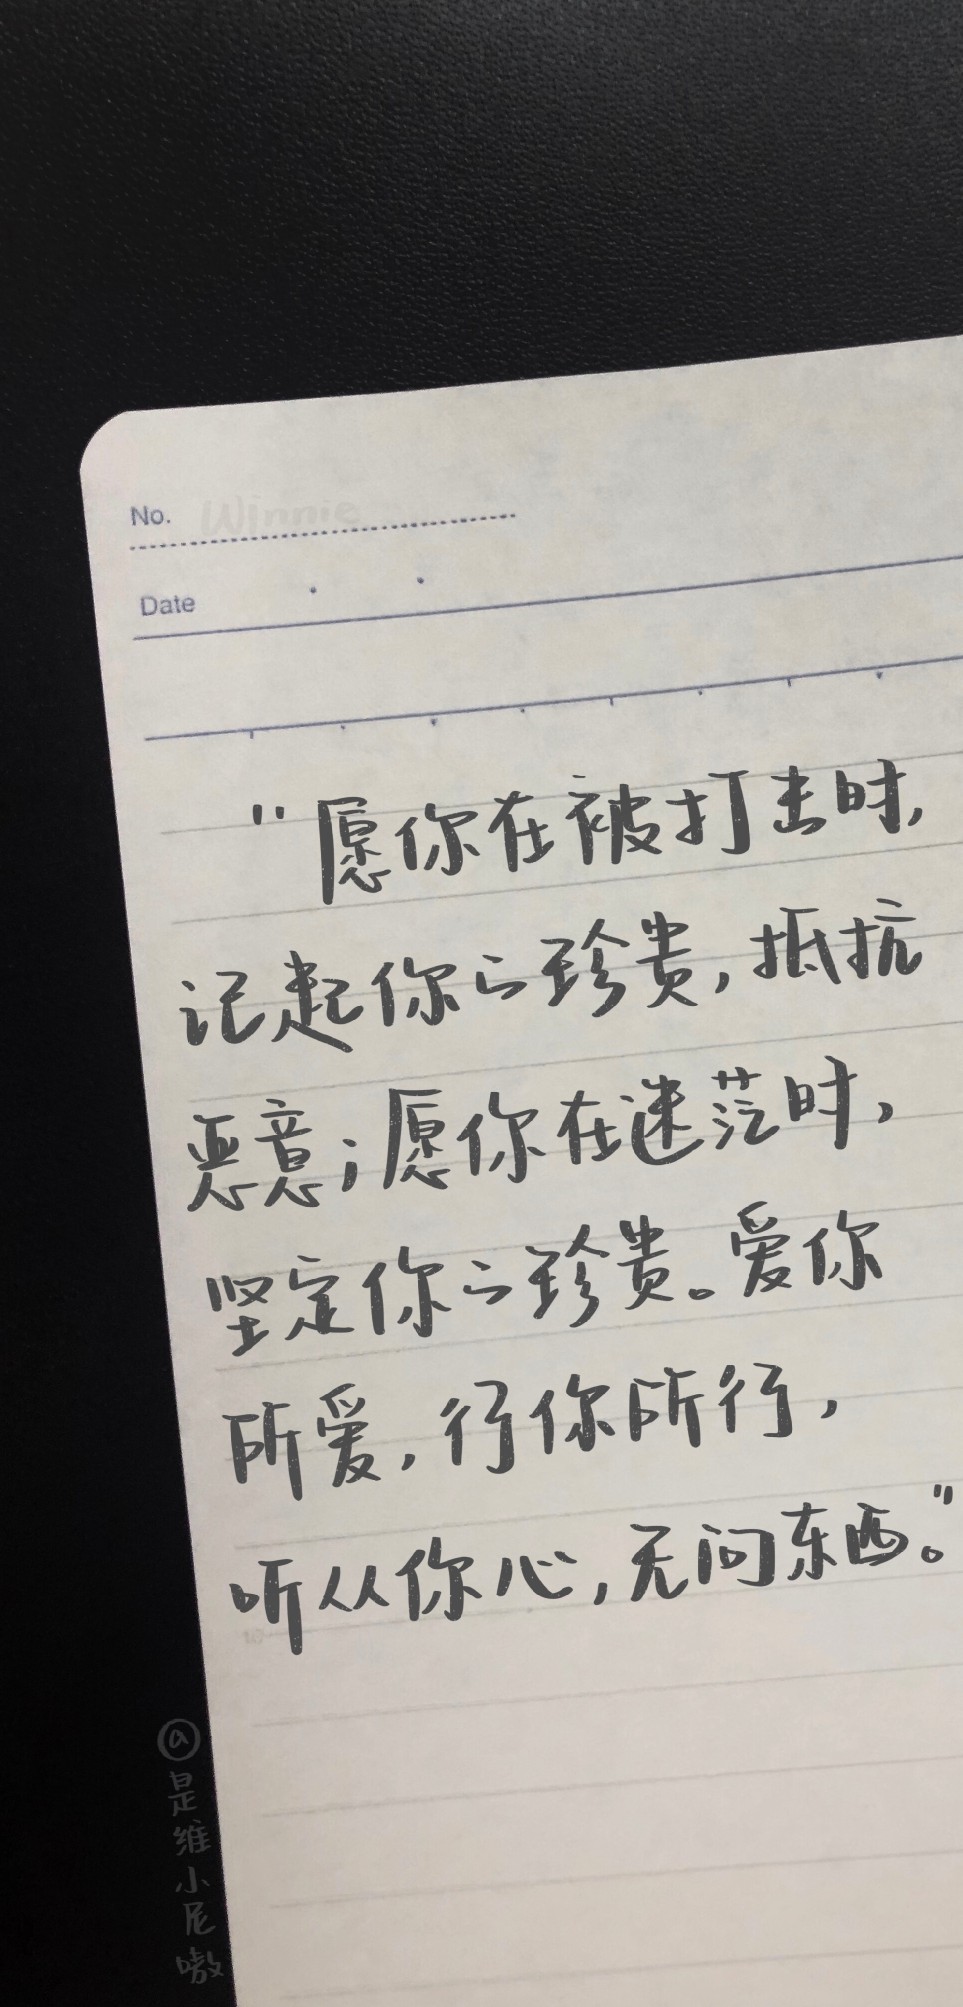 No. Winnie
Date
“愿你在被打击时,
记起你的珍贵,抵抗
恶意;愿你在迷茫时,
坚定你的珍贵。爱你
所爱,行你所行,
听从你心,无问东西。”
@是维小尼嗷